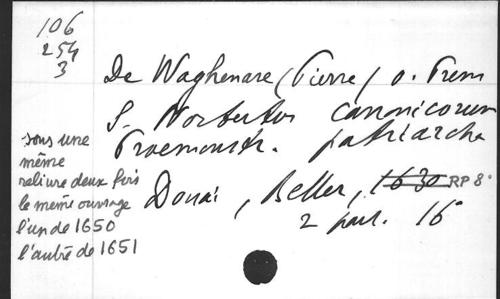 106
254
3
De Waghenare (Pierre) o. Prem
S. Norbertus canonicorum
Praemonstr. patriarcha
Douai, Beller, 1630 RP 8°
2 part. 16°
sous une
même
reliure deux fois
le même ouvrage
l'un de 1650
l'autre de 1651